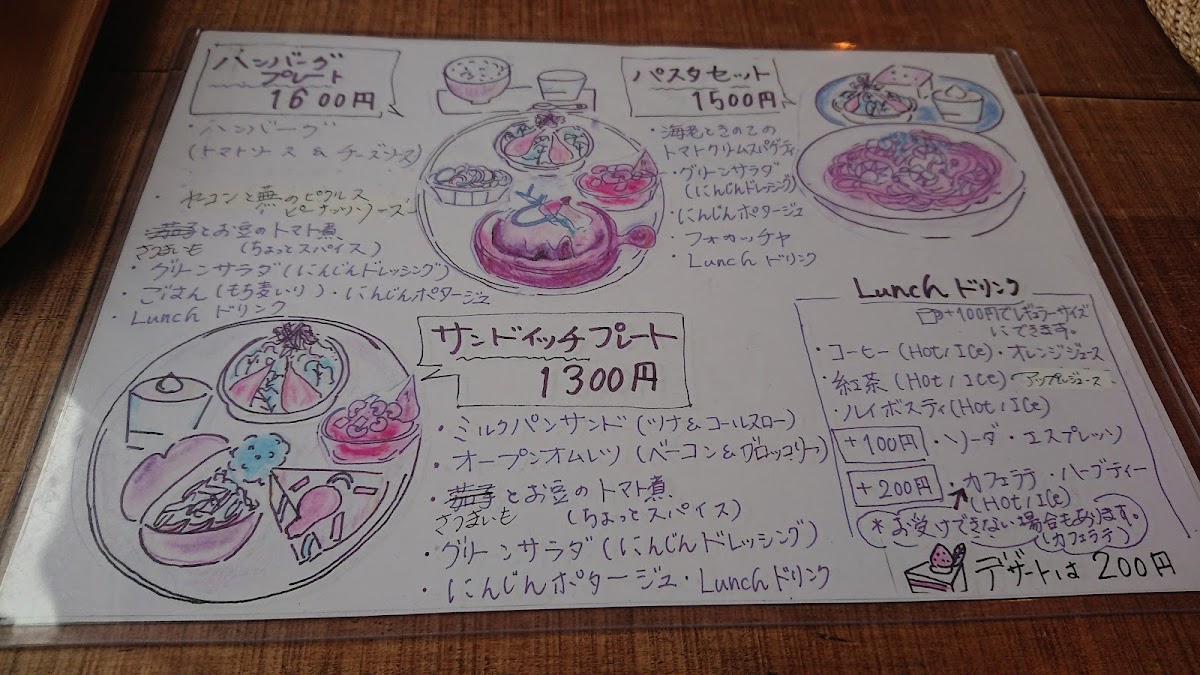 ハンバーグ
プレート
1600円
・ハンバーグ
(トマトソース & チーズソース)
・レンコンと蕪のピクルス
ピーナッツソース
茄子とお豆のトマト煮
さつまいも (ちょっとスパイス)
・グリーンサラダ(にんじんドレッシング)
・ごはん(もち麦いり)・にんじんポタージュ
・Lunch ドリンク
パスタセット
1500円
・海老ときのこの
トマトクリームスパゲティ
・グリーンサラダ
(にんじんドレッシング)
・にんじんポタージュ
・フォカッチャ
・Lunch ドリンク
サンドイッチプレート
1300円
・ミルクパンサンド(ツナ&コールスロー)
・オープンオムレツ(ベーコン&ブロッコリー)
・茄子とお豆のトマト煮
さつまいも (ちょっとスパイス)
・グリーンサラダ(にんじんドレッシング)
・にんじんポタージュ・Lunchドリンク
Lunch ドリンク
+100円でレギュラーサイズ
にできます。
・コーヒー(Hot/Ice)・オレンジジュース
・紅茶(Hot/Ice)・アップルジュース
・ルイボスティ(Hot/Ice)
+100円・ソーダ・エスプレッソ
+200円・カフェラテ・ハーブティー
(Hot/Ice)
*お受けできない場合もあります。
(カフェラテ)
デザートは200円